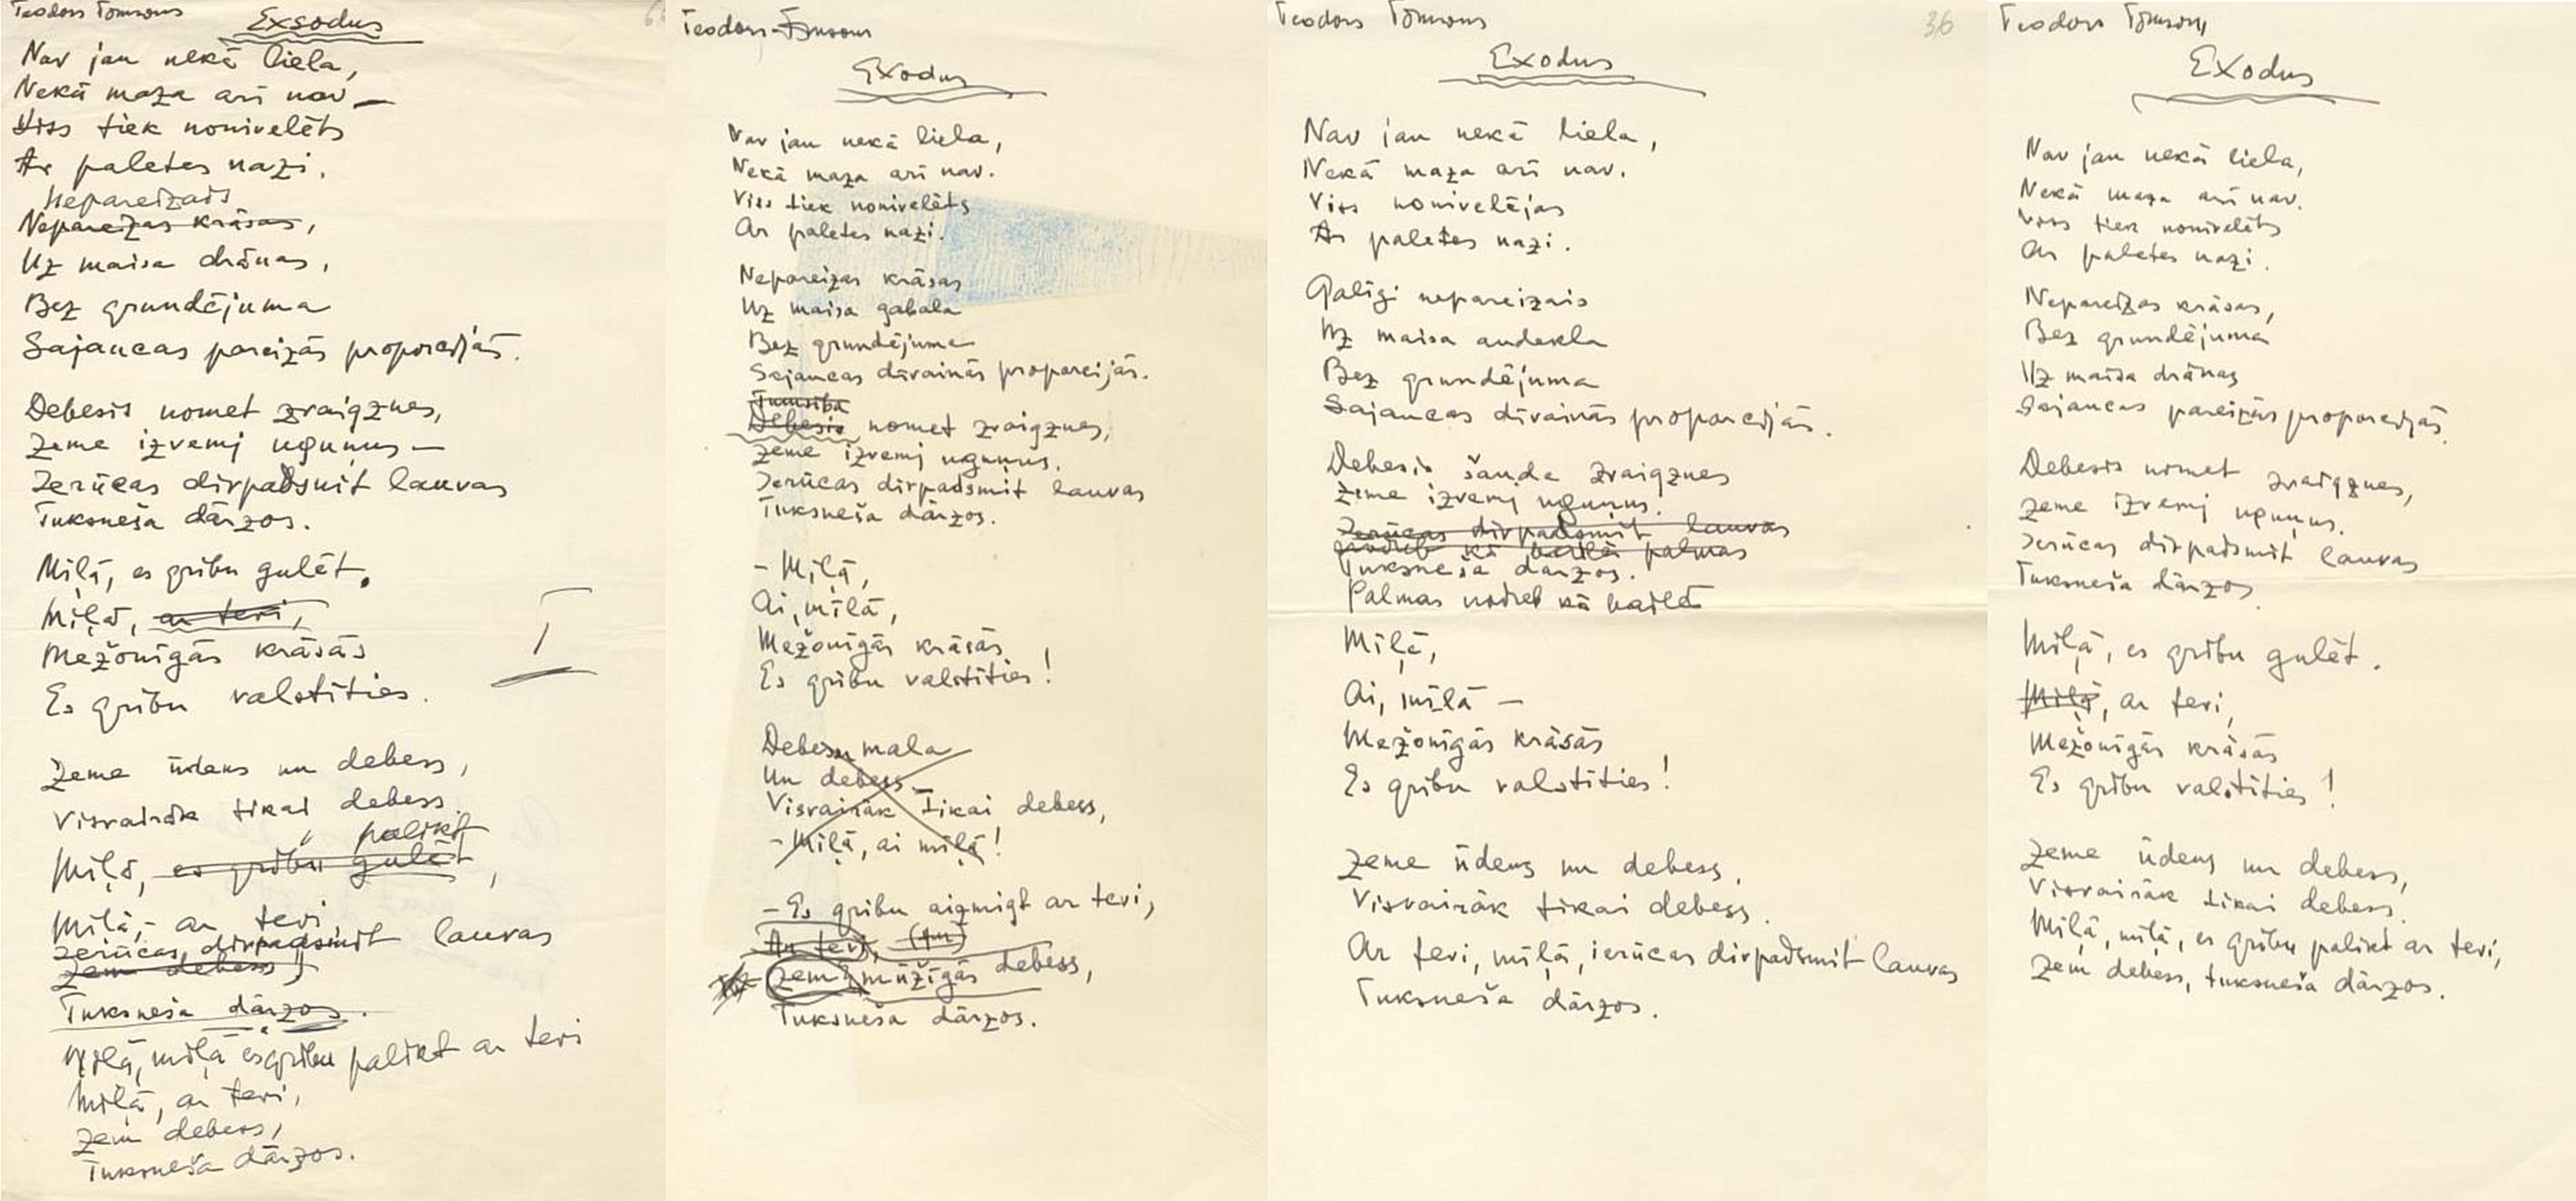 Teodors Tomsons
Exsodus
Nav jau nekā liela,
Nekā maza arī nav —
Viss tiek nonivelēts
Ar paletes nazi.
Nepareizais
Nepareizas krāsas,
Uz maisa drānas,
Bez grundējuma
Sajaucas pareizās proporcijās.
Debesis nomet zvaigznes,
Zeme izvemj ugunus —
Ierūcas divpadsmit lauvas
Tuksneša dārzos.
Mīļā, es gribu gulēt.
Mīļā, ar tevi,
Mežonīgās krāsās
Es gribu valstīties.
I
Zeme ūdens un debess,
Visvairāk tikai debess.
palikt
Mīļā, es gribu gulēt,
Mīļā, ar tevi
Ierūcas divpadsmit lauvas
Zem debess,
Tuksneša dārzos.
Mīļā, mīļā es gribu palikt ar tevi
Mīļā, ar tevi,
Zem debess,
Tuksneša dārzos.
Teodors Tomsons
Exodus
Nav jau nekā liela,
Nekā maza arī nav.
Viss tiek nonivelēts
Ar paletes nazi.
Nepareizas krāsas
Uz maisa gabala
Bez grundējuma
Sajaucas dīvainās proporcijās.
Tumsība
Debesis nomet zvaigznes,
Zeme izvemj ugunus.
Ierūcas divpadsmit lauvas
Tuksneša dārzos.
- Mīļā,
Ai, mīļā,
Mežonīgās krāsās
Es gribu valstīties!
Debesu mala
Un debess
Visvairāk tikai debess,
- Mīļā, ai mīļā!
- Es gribu aizmigt ar tevi,
Ar tevi,
Zem mūžīgās debess,
Tuksneša dārzos.
36
Teodors Tomsons
Exodus
Nav jau nekā liela,
Nekā maza arī nav.
Viss nonivelējas
Ar paletes nazi.
Galīgi nepareizais
Uz maisa audekla
Bez grundējuma
Sajaucas dīvainās proporcijās.
Debesis šauda zvaigznes
Zeme izvemj ugunus.
Ierūcas divpadsmit lauvas
nodreb kā bailēs palmas
Tuksneša dārzos.
Palmas nodreb kā bailēs
Mīļā,
Ai, mīļā —
Mežonīgās krāsās
Es gribu valstīties!
Zeme ūdens un debess,
Visvairāk tikai debess.
Ar tevi, mīļā, ierūcas divpadsmit lauvas
Tuksneša dārzos.
Teodors Tomsons
Exodus
Nav jau nekā liela,
Nekā maza arī nav.
Viss tiek nonivelēts
Ar paletes nazi.
Nepareizas krāsas,
Bez grundējuma
Uz maisa drānas
Sajaucas pareizās proporcijās.
Debesis nomet zvaigznes,
Zeme izvemj ugunus.
Ierūcas divpadsmit lauvas
Tuksneša dārzos.
Mīļā, es gribu gulēt.
Mīļā, ar tevi,
Mežonīgās krāsās
Es gribu valstīties!
Zeme ūdens un debess,
Visvairāk tikai debess.
Mīļā, mīļā, es gribu palikt ar tevi,
Zem debess, tuksneša dārzos.